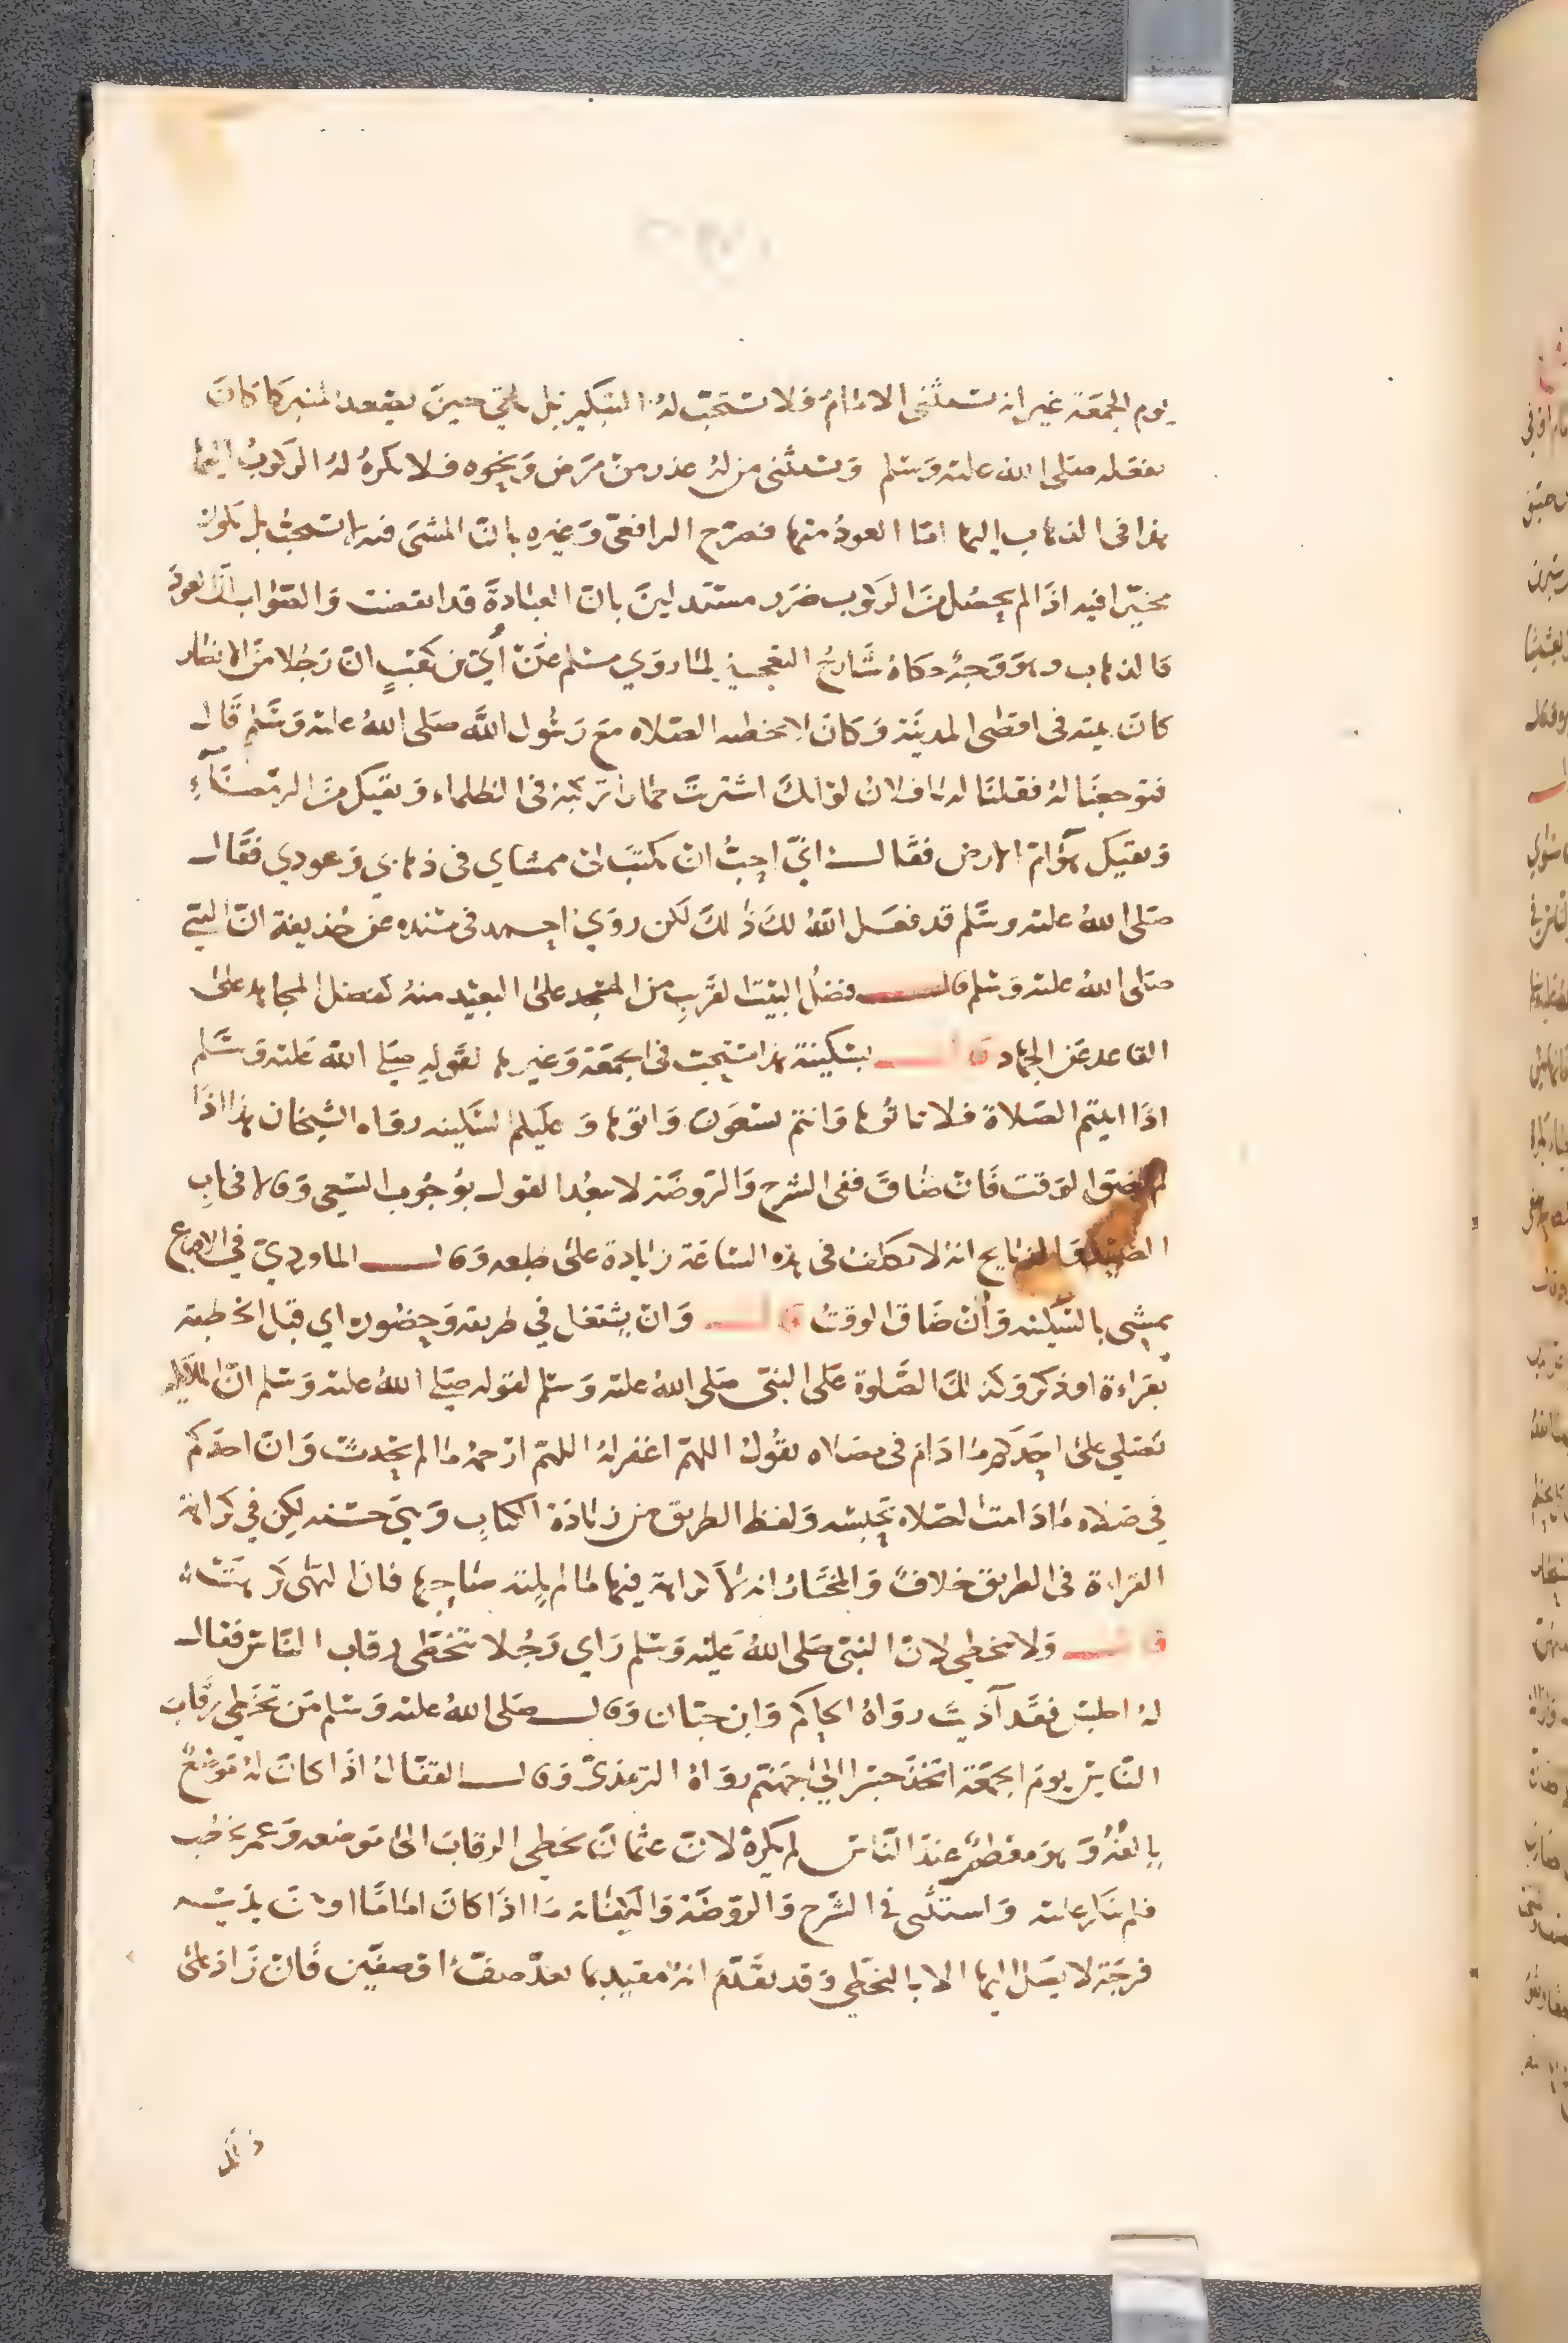 يوم الجمعة غير انه يستثنى الامام فلا يستحب له التبكير بل ياتي حين يصعد المنبر كما كان
يفعله صلى الله عليه وسلم ويستثنى من له عذر من مرض ونحوه فلا يكره له الركوب ايضا
هذا في الذهاب اليها اما العود منها فصرح الرافعي وغيره بان المشي فيه لا يستحب بل يكون
مخيرا فيه اذا لم يحصل من الركوب ضرر مستدلين بان العبادة قد انقضت والصواب ان العود
كالذهاب وهو وجه حكاه شارح التعجيز لما روي مسلم عن أبي بن كعب ان رجلا من الانصار
كان بيته في اقصى المدينة وكان لا تخطئه الصلاه مع رسول الله صلى الله عليه وسلم قال
فتوجعنا له فقلنا له يا فلان لو انك اشتريت حمارا تركبه في الظلماء وتقيك من الرمضاء
وتقيك هوام الارض فقال اني احب ان يكتب لي ممشاي في ذهابي وعودي فقال
صلى الله عليه وسلم قد فعل الله لك ذلك لكن روي احمد في مسنده عن حذيفة ان النبي
صلى الله عليه وسلم قال فضل البيت القريب من المسجد على البعيد منه كفضل المجاهد على
القاعد عن الجهاد قال بسكينة هذا مستحب في الجمعة وغيرها لقوله صلى الله عليه وسلم
اذا اتيتم الصلاة فلا تاتوها وانتم تسعون واتوها وعليكم السكينه رواه الشيخان هذا اذا
لم يضق الوقت فان ضاق ففي الشرح والروضة لا يبعد القول بوجوب السعي وقالا في باب
الصيد والذبايح انه لا تكلف في هذه الساعة زيادة على طبعه وقال الماوردي في الاقناع
يمشي بالسكينه وان ضاق الوقت قال وان يشتغل في طريقه وحضوره اي قبل الخطبة
بقراءة او ذكر وكذلك الصلوة على النبي صلى الله عليه وسلم لقوله صلى الله عليه وسلم ان الملايكة
تصلي على احدكم ما دام في مصلاه تقول اللهم اغفر له اللهم ارحمه ما لم يحدث وان احدكم
في صلاه ما دامت الصلاه تحبسه ولفظ الطريق من زيادة الكتاب وهي حسنه لكن في كراهة
القراءة في الطريق خلاف والمختار انه لا كراهة فيها ما لم يلته صاحبها فاذا التهى كرهت
قال ولا يتخطي لان النبي صلى الله عليه وسلم راي رجلا يتخطى رقاب الناس فقال
له اجلس فقد آذيت رواه الحاكم وابن حبان وقال صلى الله عليه وسلم من تخطى رقاب
الناس يوم الجمعة اتخذ جسرا الى جهنم رواه الترمذي وقال القفال اذا كان له موضع
يالفه وهو معظم عند الناس لم يكره لان عثمان تخطي الرقاب الى موضعه وعمر يخطب
فلم ينكر عليه واستثنى في الشرح والروضة والكفاية ما اذا كان اماما او بين يديه
فرجة لا يصل اليها الا بالتخطي وقد تقدم انه مقيد بما بعد صف او صفين فان زاد على
ذلك